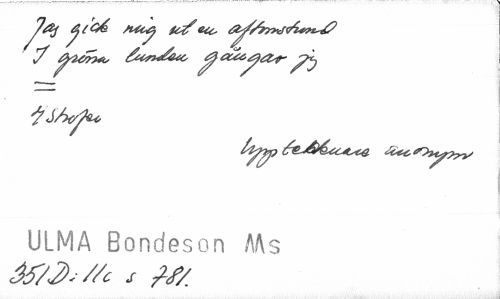 Jag gick mig ut en aftonstund
I gröna lunden gångar jg
=
4 strofer
Upptecknare anonym
ULMA Bondeson Ms
351 D: 11c s 781.